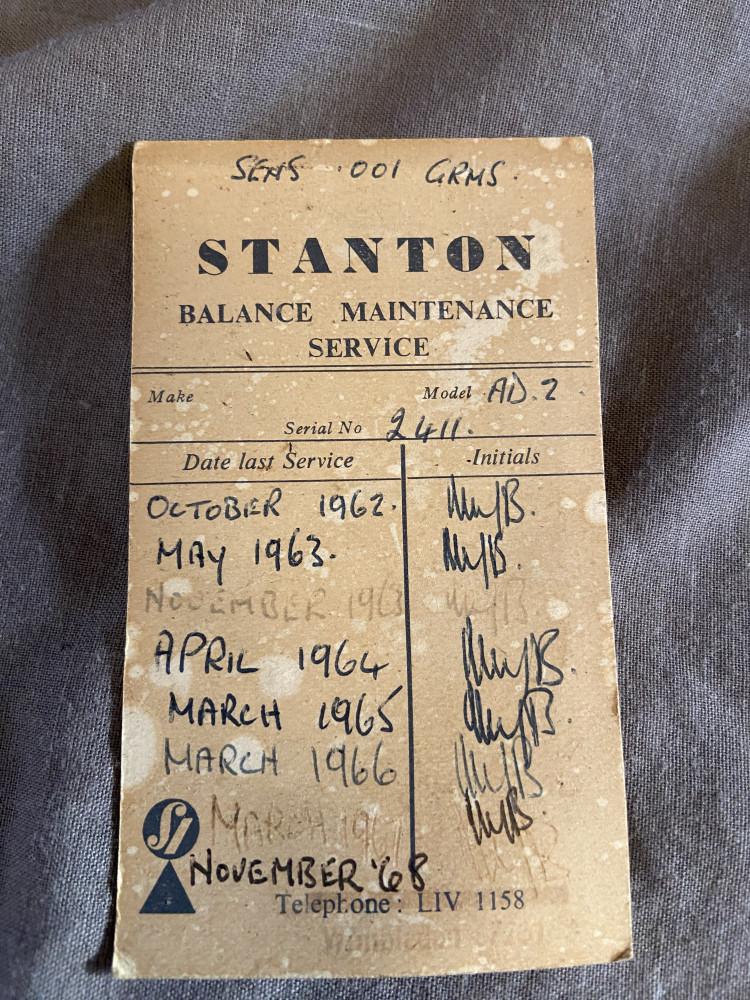 SENS .001 GRMS.
STANTON
BALANCE MAINTENANCE
SERVICE
Make Model AD.2
Serial No 2411.
Date last Service Initials
OCTOBER 1962.
MAY 1963.
NOVEMBER 1963
APRIL 1964
MARCH 1965
MARCH 1966
MARCH 1967
NOVEMBER '68
Telephone: LIV 1158